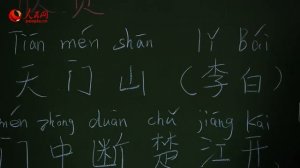 人民网
people.cn
Tiān mén shān Lǐ Bái
天门山（李白）
mén zhōng duàn chǔ jiāng kāi
门中断楚江开